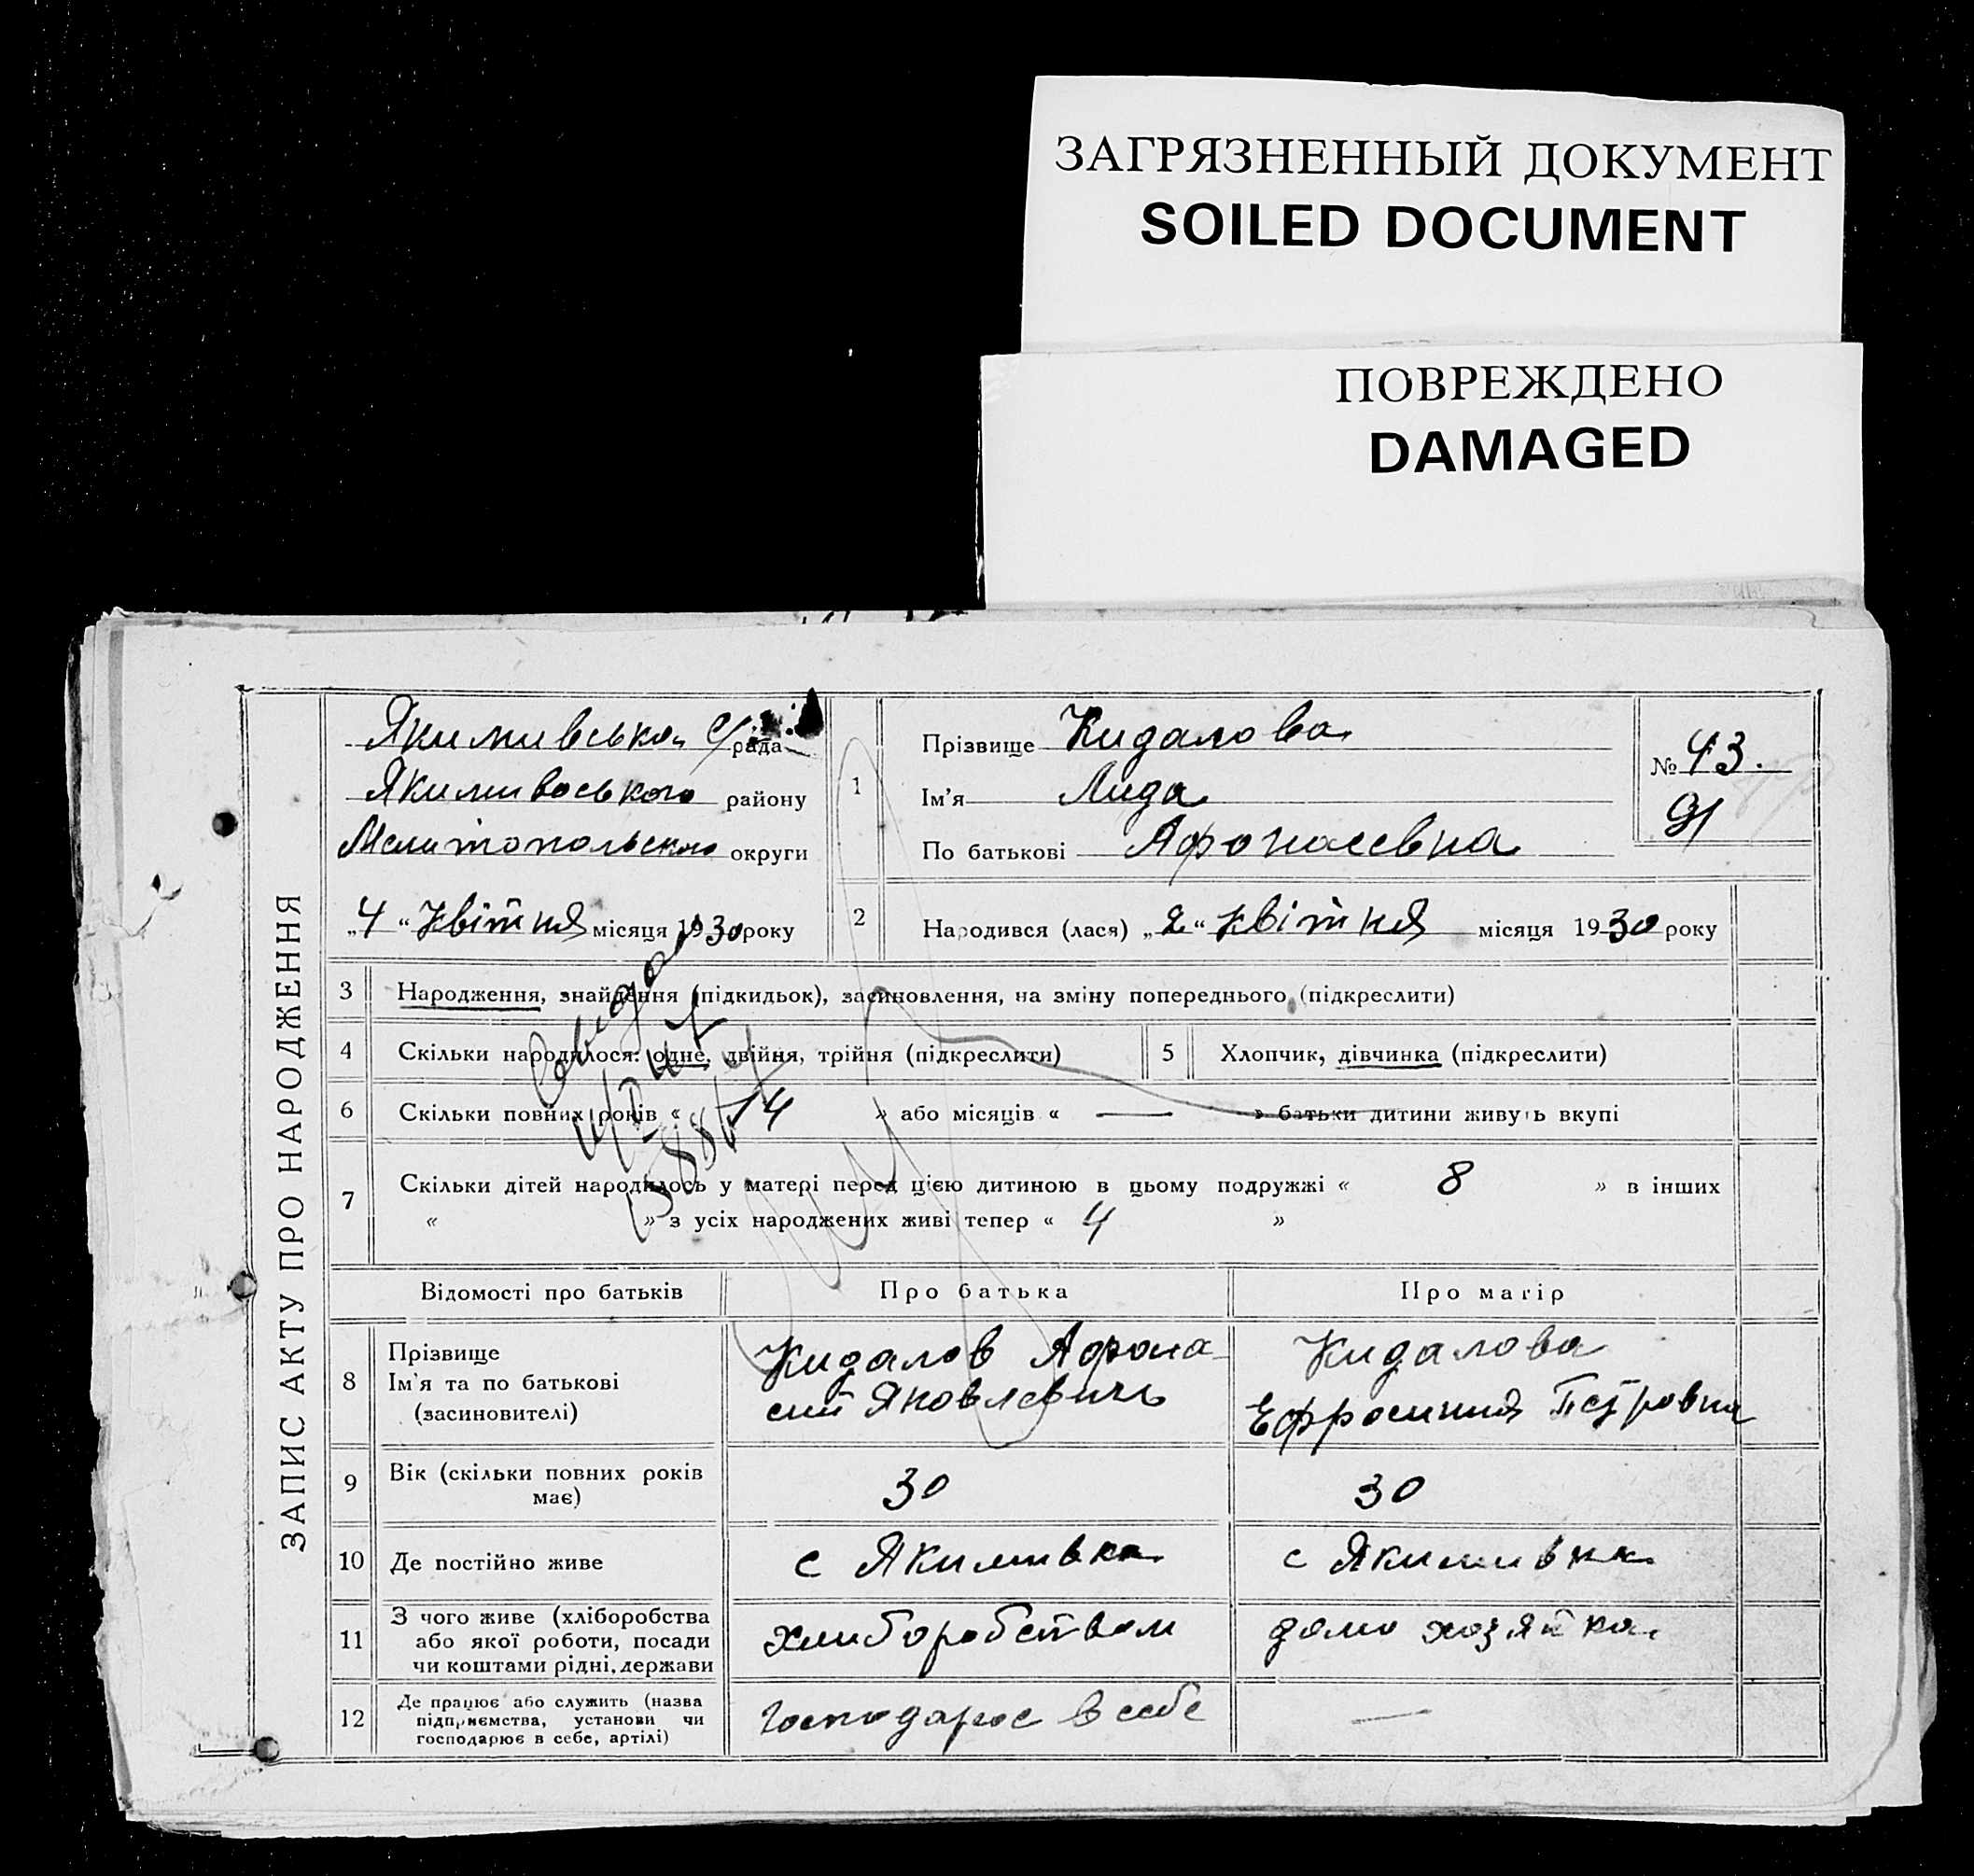 ЗАГРЯЗНЕННЫЙ ДОКУМЕНТ
SOILED DOCUMENT
ПОВРЕЖДЕНО
DAMAGED
ЗАПИС АКТУ ПРО НАРОДЖЕННЯ
Якимивська с/рада
Якимивоського району
Мелитопольского округи
„4“ Квітня місяця 1930 року
1
Прізвище Кидалова
Ім’я Лида
По батькові Афонасевна
№ 43.
91
2 Народився (лася) „2“ Квітня місяця 1930 року
3 Народження, знайдення (підкидьок), засиновлення, на зміну попереднього (підкреслити)
4 Скільки народилося: одне, двійня, трійня (підкреслити)
5 Хлопчик, дівчинка (підкреслити)
6 Скільки повних років « 14 » або місяців « — » батьки дитини живуть вкупі
7 Скільки дітей народилось у матері перед цією дитиною в цьому подружжі « 8 » в інших
« » з усіх народжених живі тепер « 4 »
Відомості про батьків Про батька Про матір
8 Прізвище
Ім’я та по батькові
(засиновителі)
Кидалов Афона
сий Яковлевичь
Кидалова
Ефросиния Петровна
9 Вік (скільки повних років
має)
30
30
10 Де постійно живе с Якимивка с Якимивка
11 З чого живе (хліборобства
або якої роботи, посади
чи коштами рідні, держави
хлиборобством
домо хозяйка
12 Де працює або служить (назва
підприємства, установи чи
господарює в себе, артілі)
господарює в себе
—